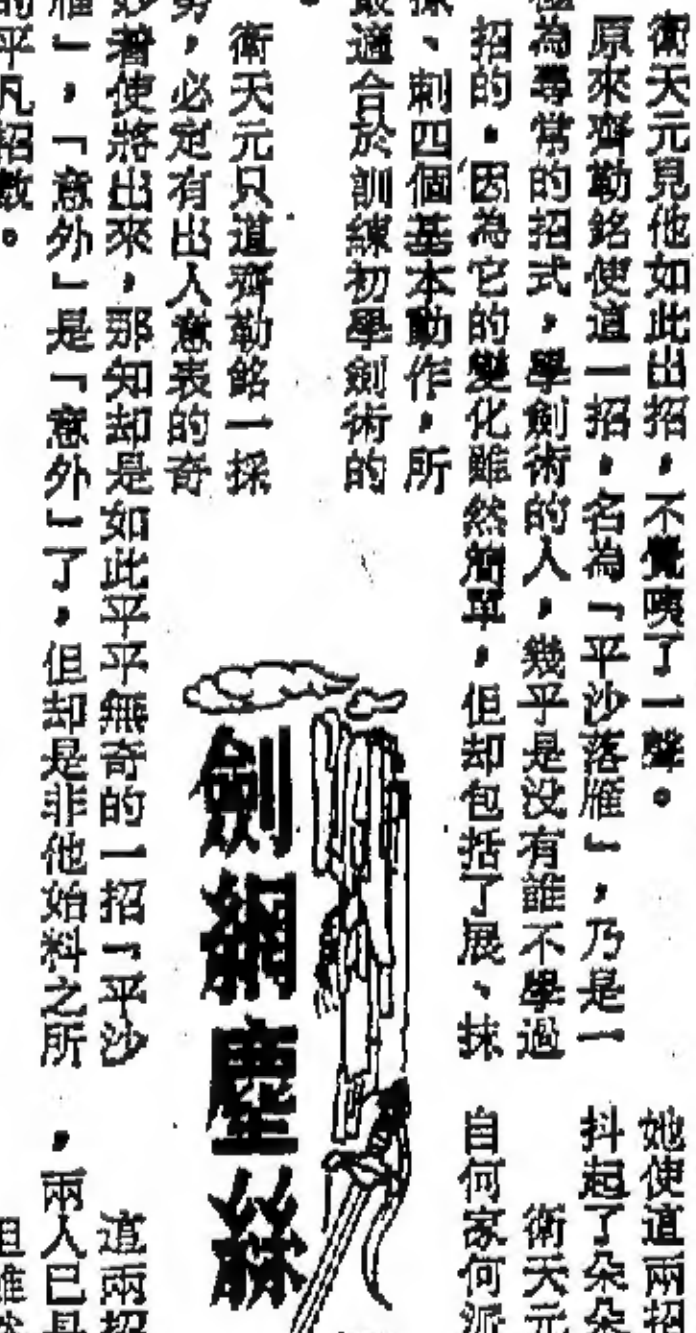 衛天元見他如此出招，不覺咦了一聲。
原來齊勒銘使這一招，名為「平沙落雁」，乃是一
極為尋常的招式，學劍術的人，幾乎是没有誰不學過
招的。因為它的變化雖然簡單，但却包括了展、抹
、刺四個基本動作，所
最適合於訓練初學劍術的
。
衛天元只道齊勒銘一採
勢，必定有出人意表的奇
妙着使將出來，那知却是如此平平無奇的一招「平沙
雁」，「意外」是「意外」了，但却是非他始料之所
的平凡招數。
劍網塵絲
她使這兩招
抖起了朵朵
衛天元
自何家何派
這兩招
，兩人已是
但雖然